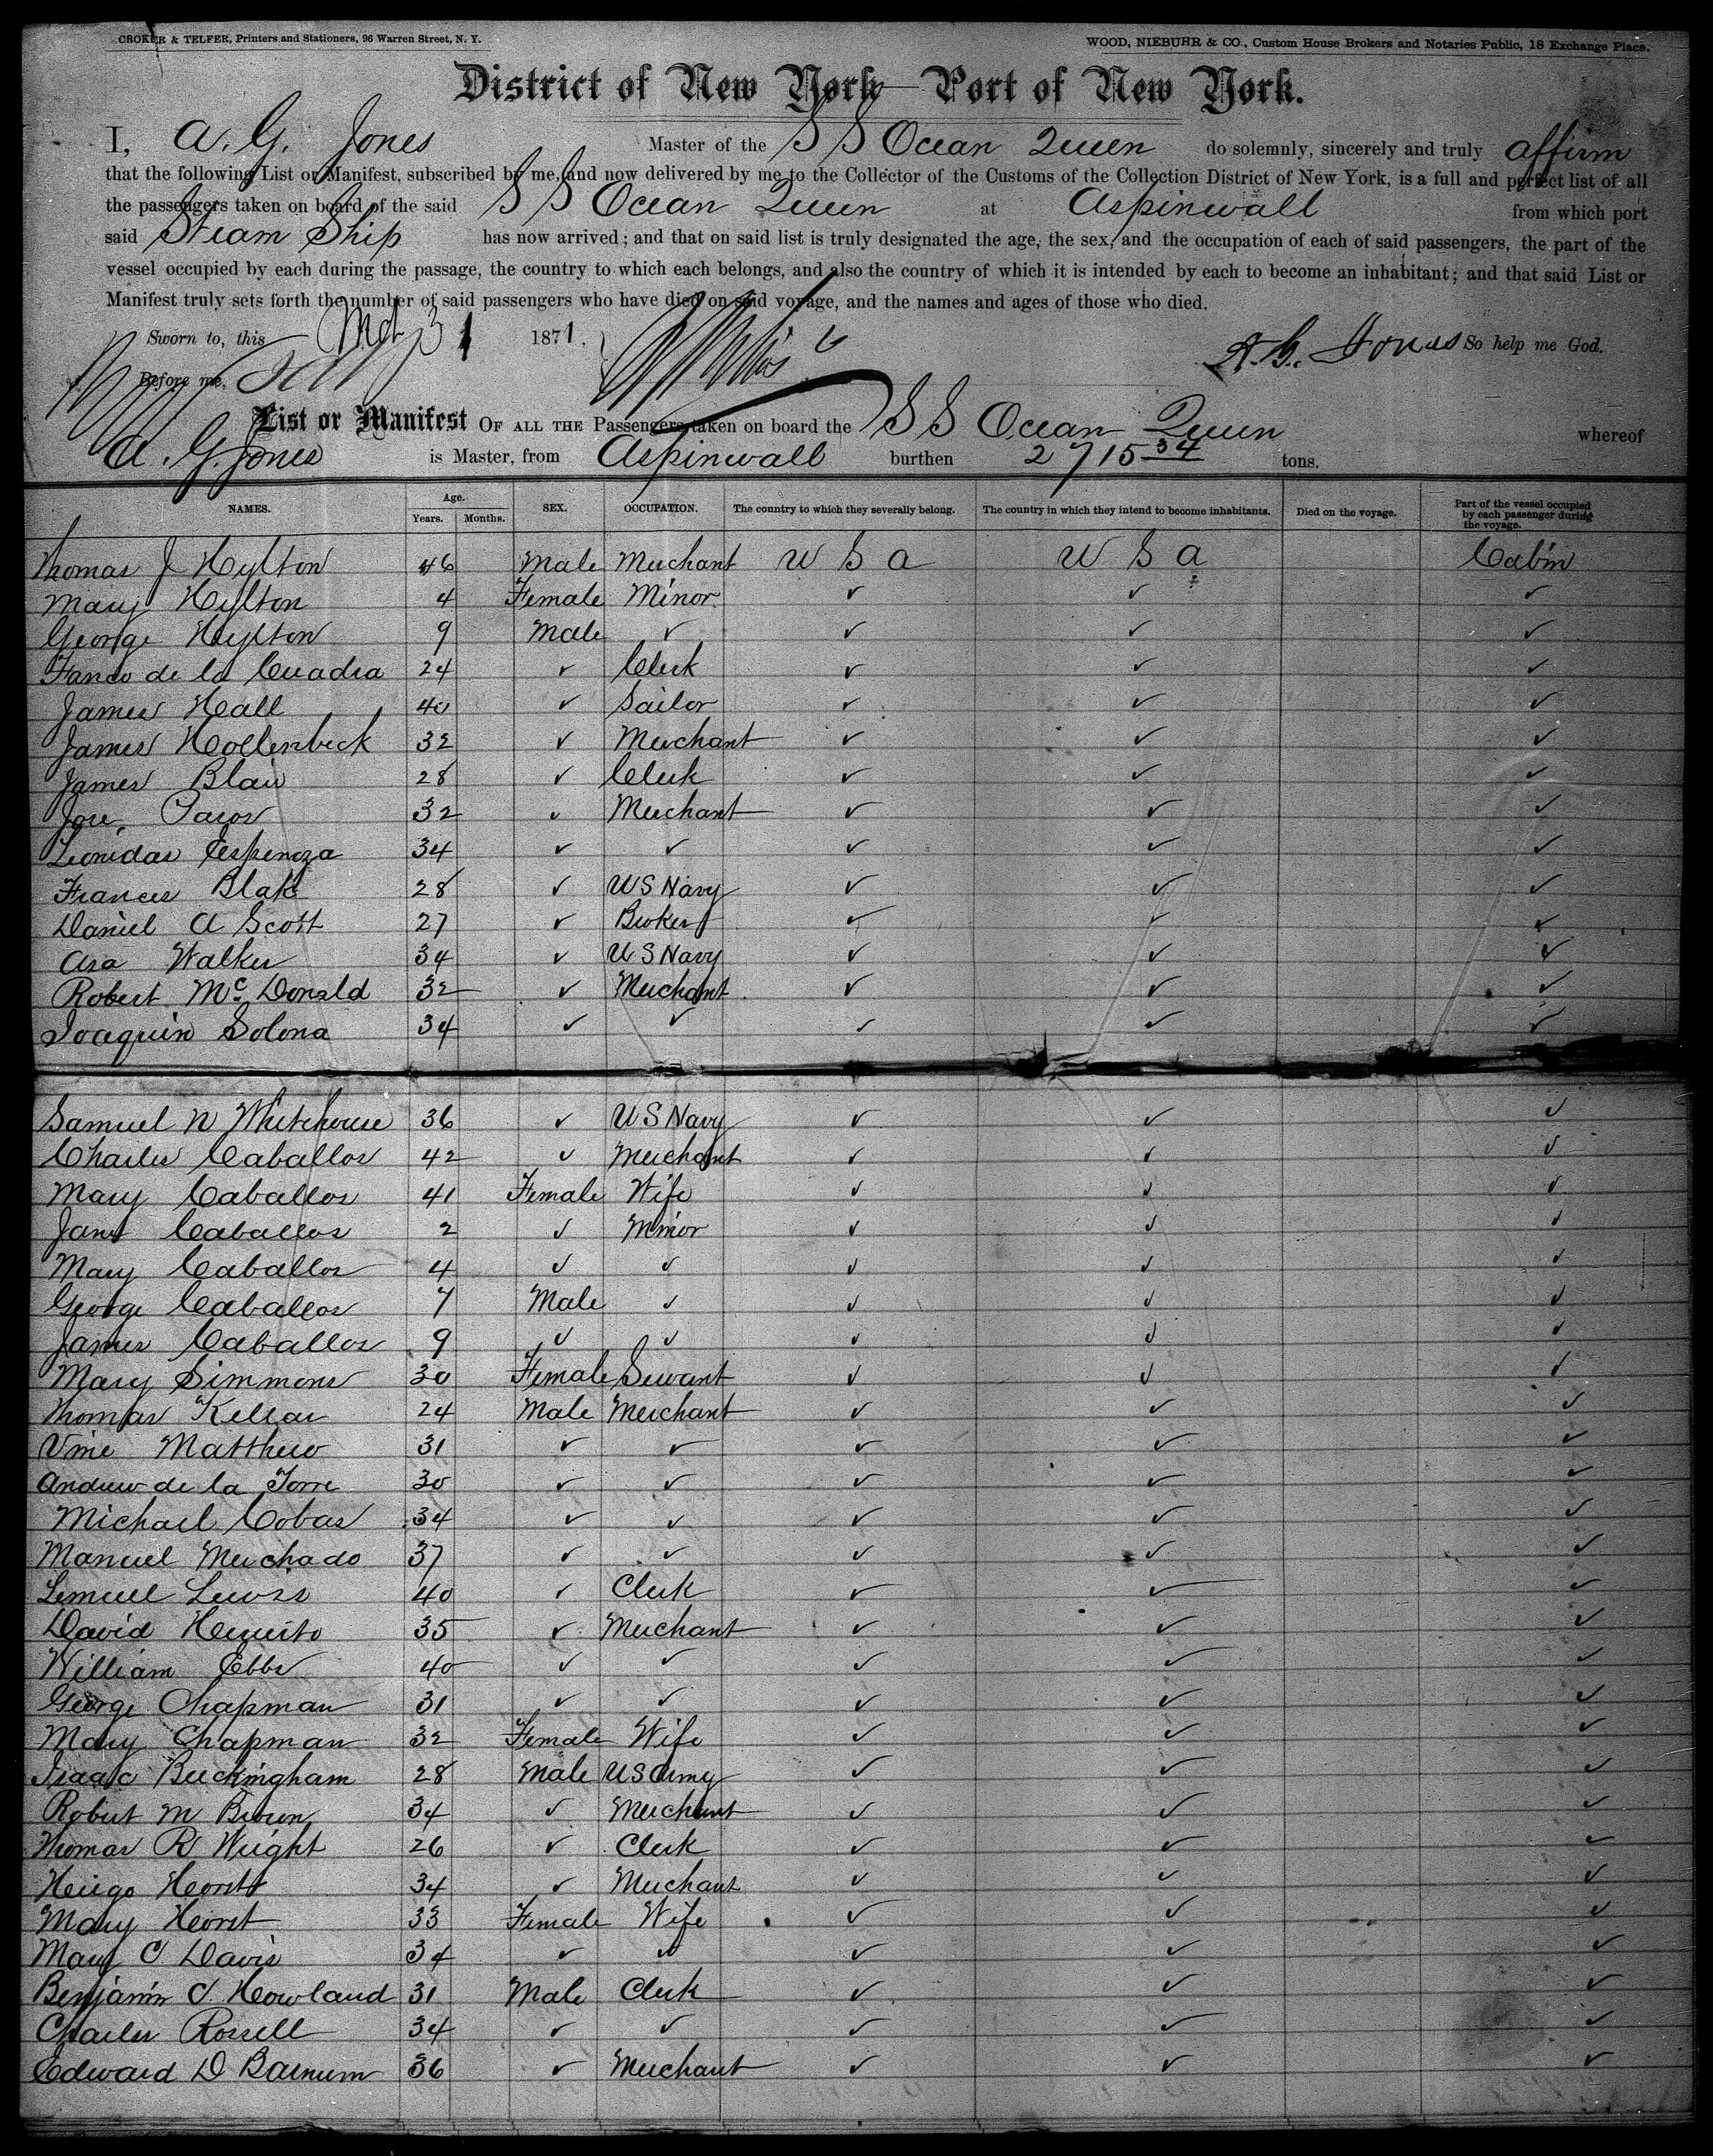 CROKER & TELFER, Printers and Stationers, 96 Warren Street, N. Y.
WOOD, NIEBUHR & CO., Custom House Brokers and Notaries Public, 18 Exchange Place.
District of New York Port of New York.
I, A. G. Jones Master of the S S Ocean Queen do solemnly, sincerely and truly affirm
that the following List or Manifest, subscribed by me, and now delivered by me to the Collector of the Customs of the Collection District of New York, is a full and perfect list of all
the passengers taken on board of the said S S Ocean Queen at Aspinwall from which port
said Steam Ship has now arrived; and that on said list is truly designated the age, the sex, and the occupation of each of said passengers, the part of the
vessel occupied by each during the passage, the country to which each belongs, and also the country of which it is intended by each to become an inhabitant; and that said List or
Manifest truly sets forth the number of said passengers who have died on said voyage, and the names and ages of those who died.
Sworn to, this 31 1871. A. G. Jones So help me God.
Before me,
List or Manifest OF ALL THE Passengers taken on board the S S Ocean Queen whereof
A. G. Jones is Master, from Aspinwall burthen 2715 34 tons.
NAMES. Age. Years. Months. SEX. OCCUPATION. The country to which they severally belong. The country in which they intend to become inhabitants. Died on the voyage. Part of the vessel occupied by each passenger during the voyage.
Thomas J Hylton 46 Male Merchant U S A U S A Cabin
Mary Hylton 4 Female Minor ✓ ✓ ✓
George Hylton 9 Male ✓ ✓ ✓ ✓
de la Cuadra 24 ✓ Clerk ✓ ✓ ✓
James Hall 40 ✓ Sailor ✓ ✓ ✓
James Hollenbeck 32 ✓ Merchant ✓ ✓ ✓
James Blair 28 ✓ Clerk ✓ ✓ ✓
Jose 32 ✓ Merchant ✓ ✓ ✓
Leonidas Espinoza 34 ✓ ✓ ✓ ✓ ✓
Frances Blake 28 ✓ U S Navy ✓ ✓ ✓
Daniel A Scott 27 ✓ Broker ✓ ✓ ✓
Asa Walker 34 ✓ U S Navy ✓ ✓ ✓
Robert Mc Donald 32 ✓ Merchant ✓ ✓ ✓
Joaquin Solona 34 ✓ ✓ ✓ ✓ ✓
Samuel N Whitehouse 36 ✓ U S Navy ✓ ✓ ✓
Charles Caballos 42 ✓ Merchant ✓ ✓ ✓
Mary Caballos 41 Female Wife ✓ ✓ ✓
Jane Caballos 2 ✓ Minor ✓ ✓ ✓
Mary Caballos 4 ✓ ✓ ✓ ✓ ✓
George Caballos 7 Male ✓ ✓ ✓ ✓
James Caballos 9 ✓ ✓ ✓ ✓ ✓
Mary Simmons 30 Female Servant ✓ ✓ ✓
Thomas Kellar 24 Male Merchant ✓ ✓ ✓
Vine Matthew 31 ✓ ✓ ✓ ✓ ✓
Andrew de la Torre 30 ✓ ✓ ✓ ✓ ✓
Michael Cobas 34 ✓ ✓ ✓ ✓ ✓
Manuel Merchado 37 ✓ ✓ ✓ ✓ ✓
Lemuel Lewis 40 ✓ Clerk ✓ ✓ ✓
David 35 ✓ Merchant ✓ ✓ ✓
William Ebbs 40 ✓ ✓ ✓ ✓ ✓
George Chapman 31 ✓ ✓ ✓ ✓ ✓
Mary Chapman 32 Female Wife ✓ ✓ ✓
Isaac Buckingham 28 Male U S Army ✓ ✓ ✓
Robert M Brown 34 ✓ Merchant ✓ ✓ ✓
Thomas R Wright 26 ✓ Clerk ✓ ✓ ✓
Hugo Horst 34 ✓ Merchant ✓ ✓ ✓
Mary Horst 33 Female Wife ✓ ✓ ✓
Mary C Davis 34 ✓ ✓ ✓ ✓ ✓
Benjamin C. Howland 31 Male Clerk ✓ ✓ ✓
Charles Rossell 34 ✓ ✓ ✓ ✓ ✓
Edward D Barnum 36 ✓ Merchant ✓ ✓ ✓